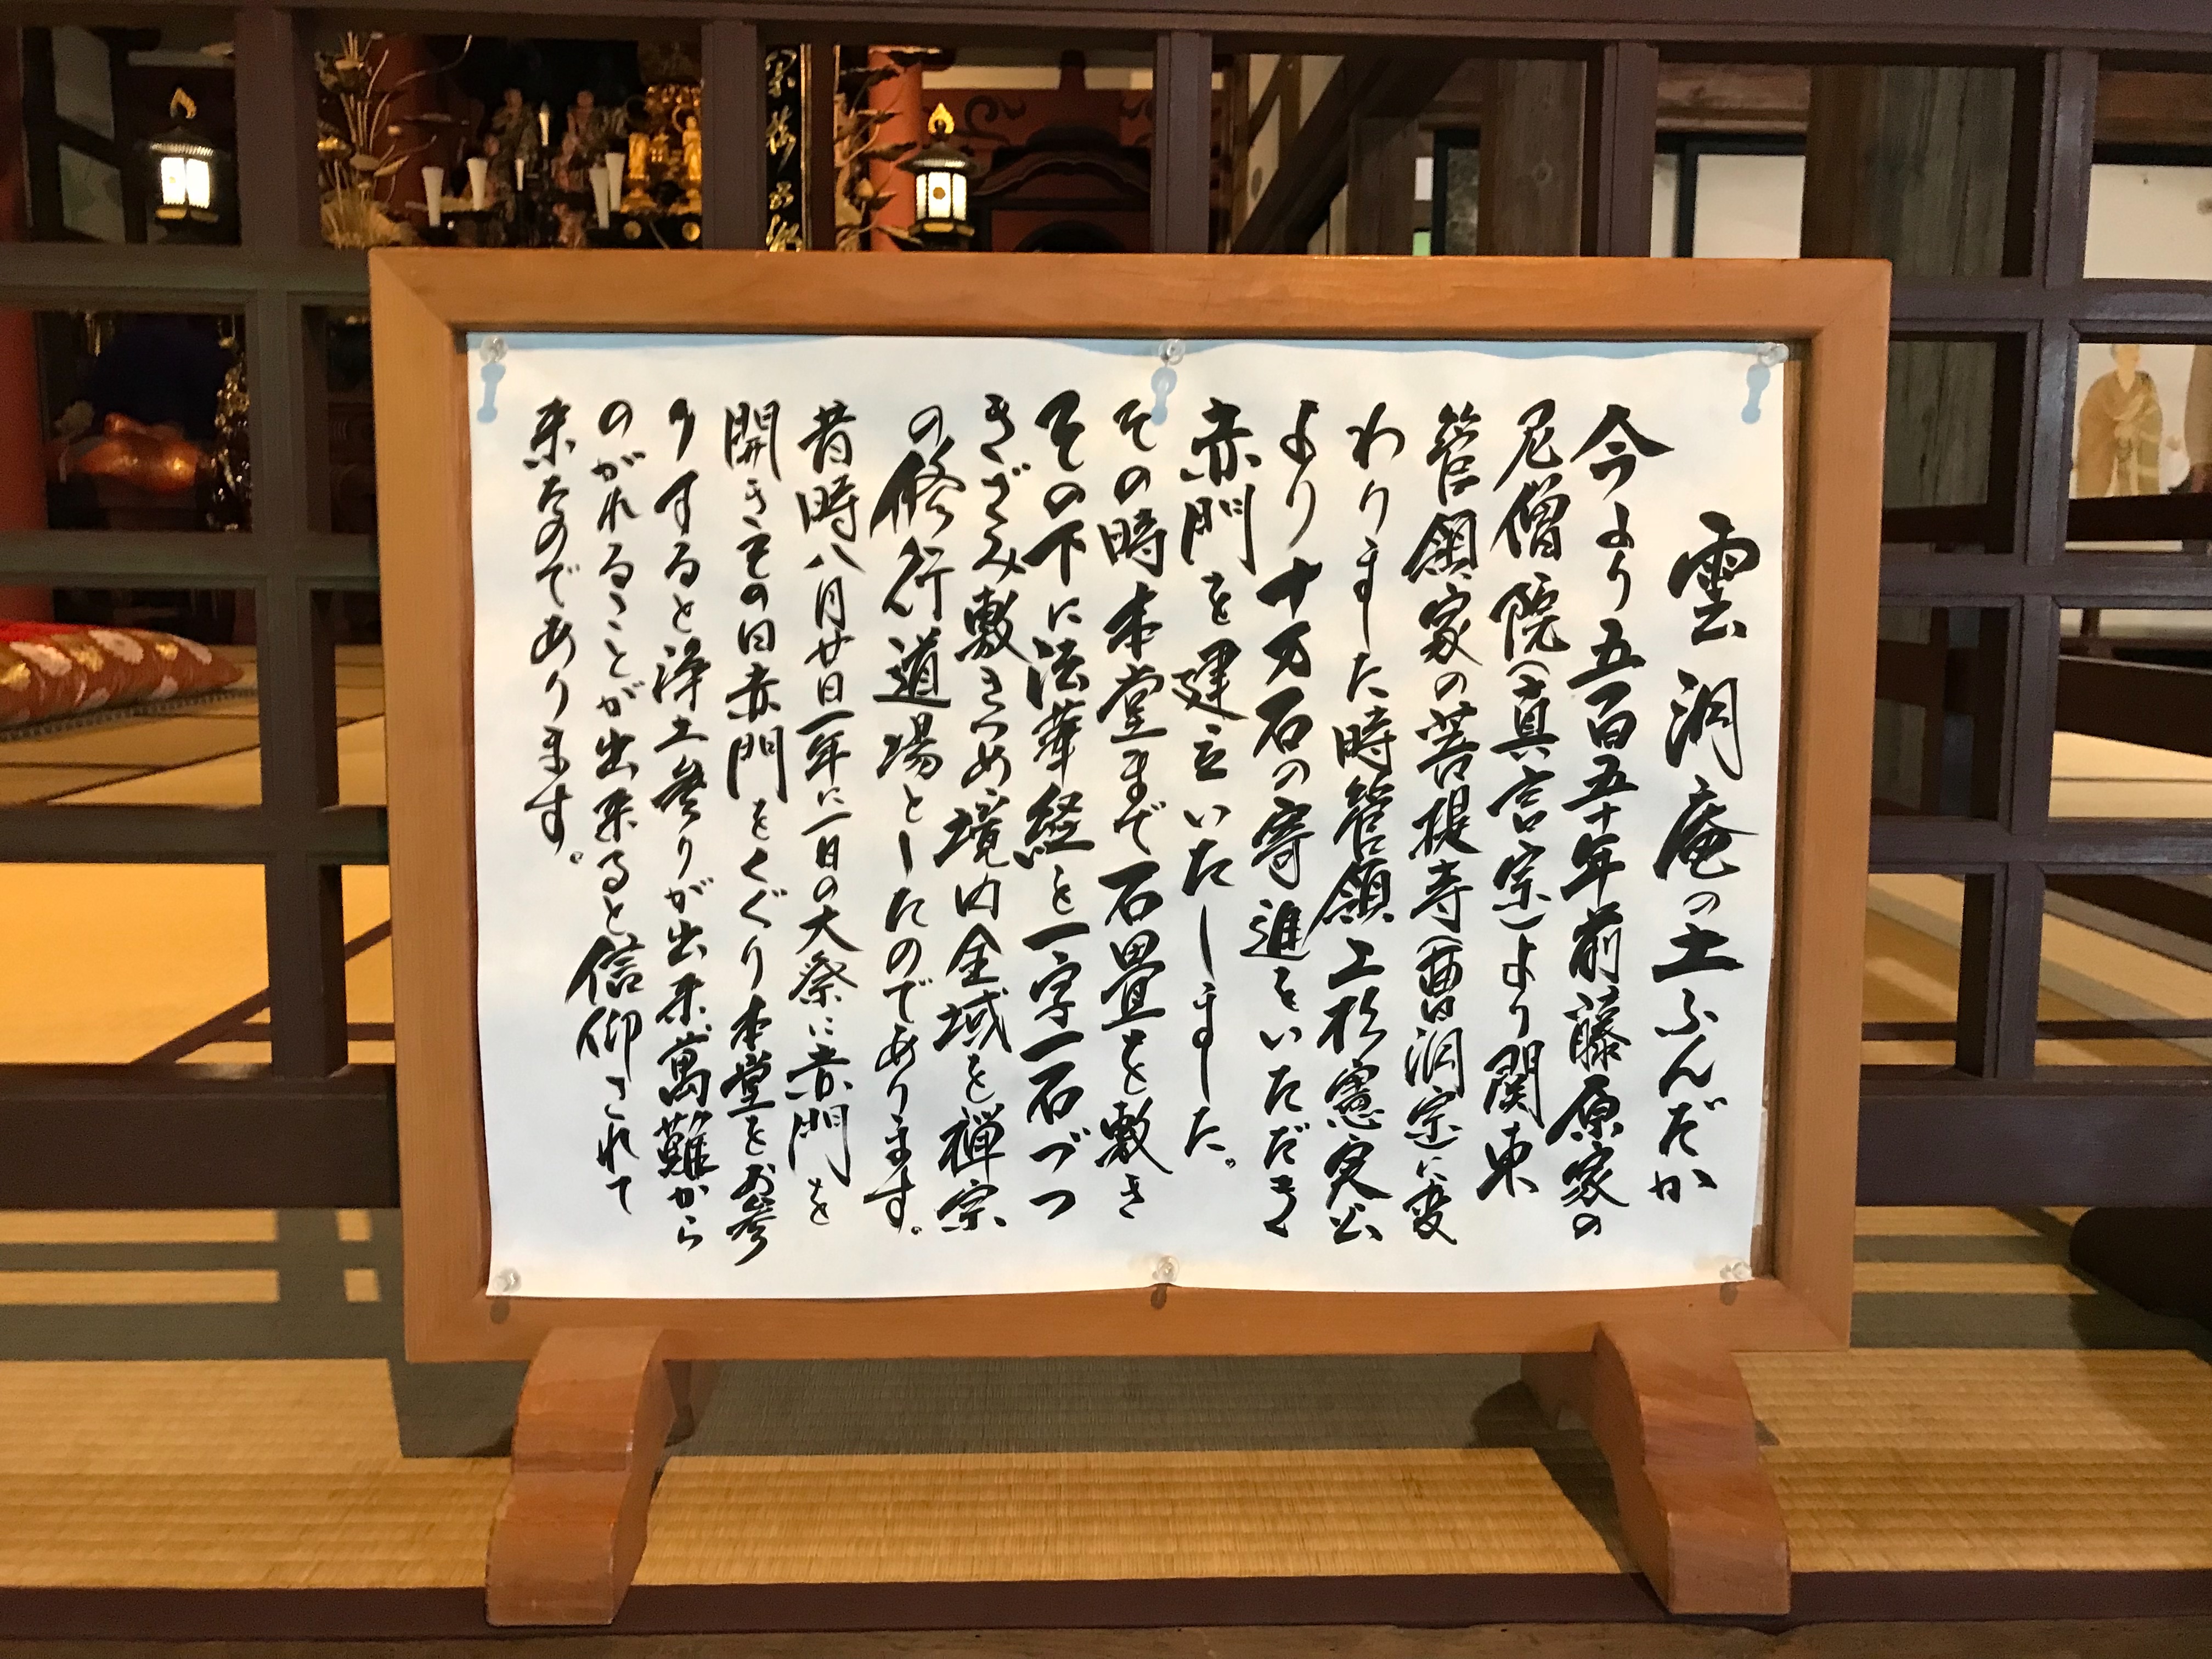 雲洞庵の土ふんだか
今より五百五十年前藤原家の
尼僧院(真言宗)より関東
管領家の菩提寺(曹洞宗)に変
わりました時管領上杉憲実公
より十万石の寄進をいただき
赤門を建立いたしました。
その時本堂まで石畳を敷き
その下に法華経を一字一石づつ
きざみ敷きつめ境内全域を禅宗
の修行道場としたのであります。
昔時八月廿日一年に一日の大祭に赤門を
開きその日赤門をくぐり本堂をお参
りすると浄土参りが出来萬難から
のがれることが出来ると信仰されて
来たのであります。